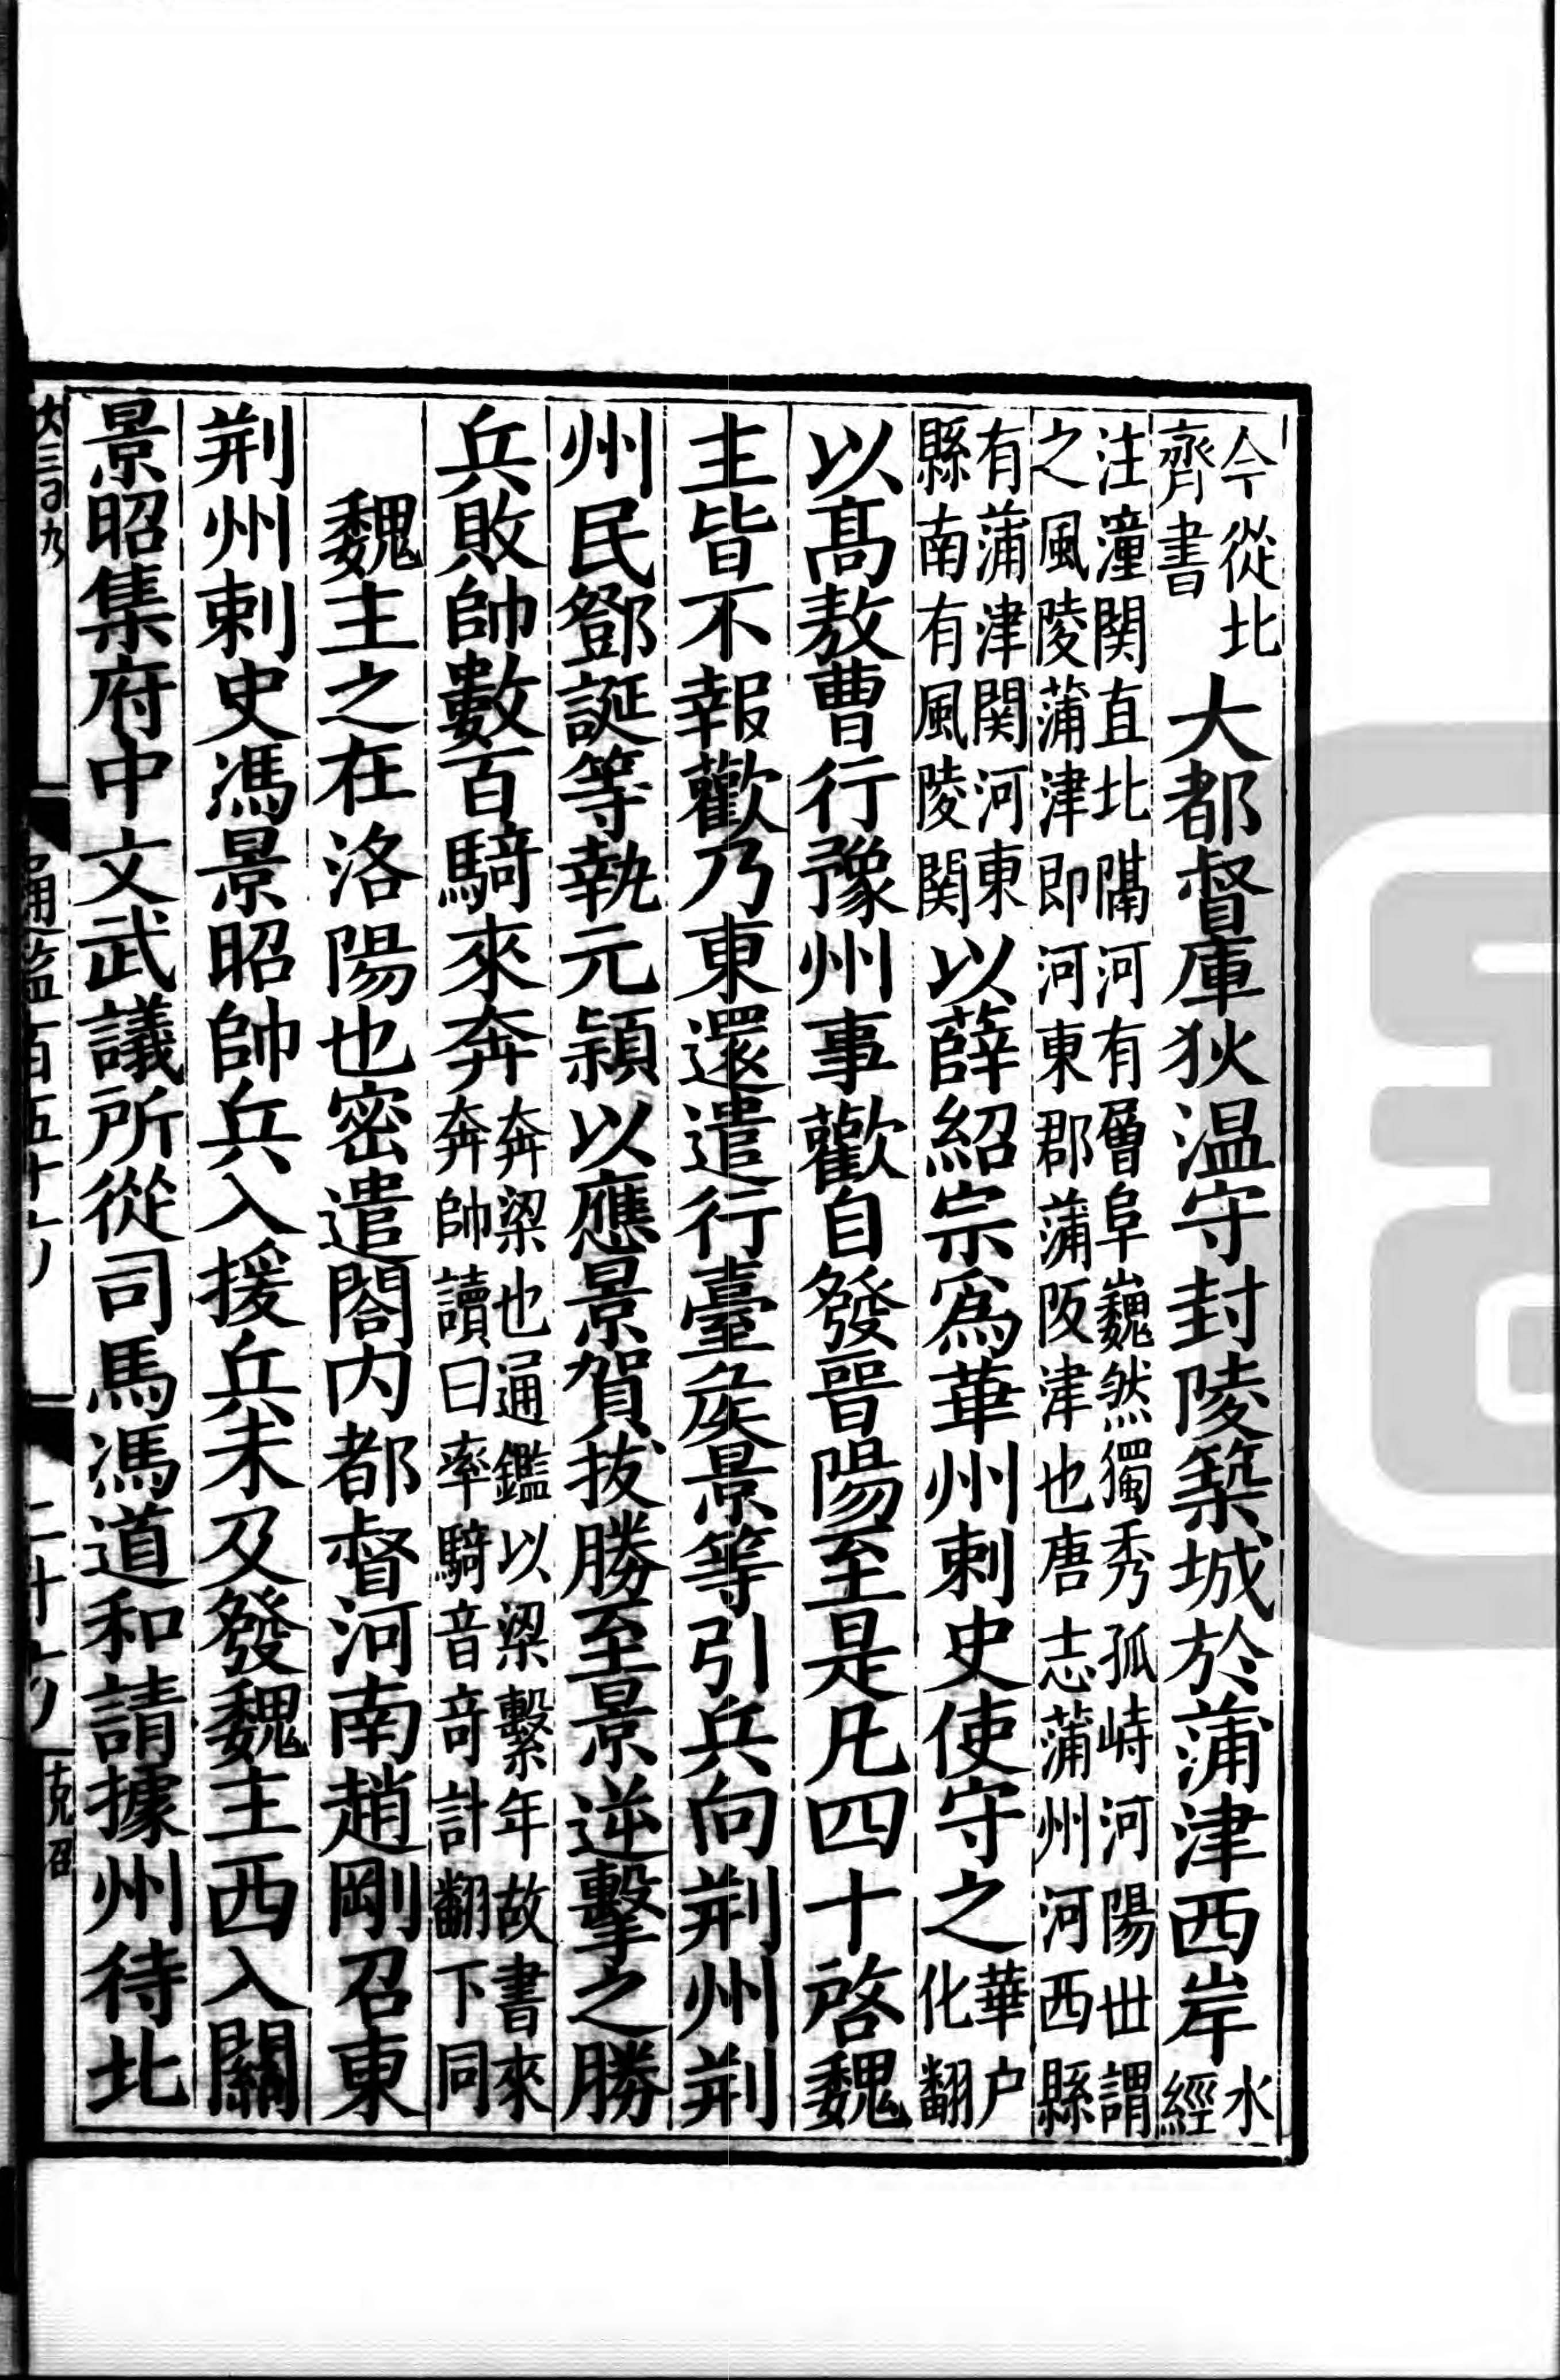 今從北齊書大都督庫狄温守封陵築城於蒲津西岸水經
注潼関直北隔河有層阜巍然獨秀孤峙河陽世謂之風陵蒲津即河東郡蒲阪津也唐志蒲州河西縣
有蒲津関河東縣南有風陵関以薛紹宗爲華州刺史使守之華户化翻
以髙敖曹行豫州事歡自發晉陽至是凡四十啓魏
主皆不報歡乃東還遣行臺矦景等引兵向荆州荆
州民鄧誕等執元潁以應景賀拔勝至景逆擊之勝
兵敗帥數百騎來奔奔梁也通鑑以梁繫年故書來奔帥讀曰率騎音奇計翻下同
魏主之在洛陽也密遣閤内都督河南趙剛召東
荆州刺史馮景昭帥兵入援兵未及發魏主西入關
景昭集府中文武議所從司馬馮道和請據州待北